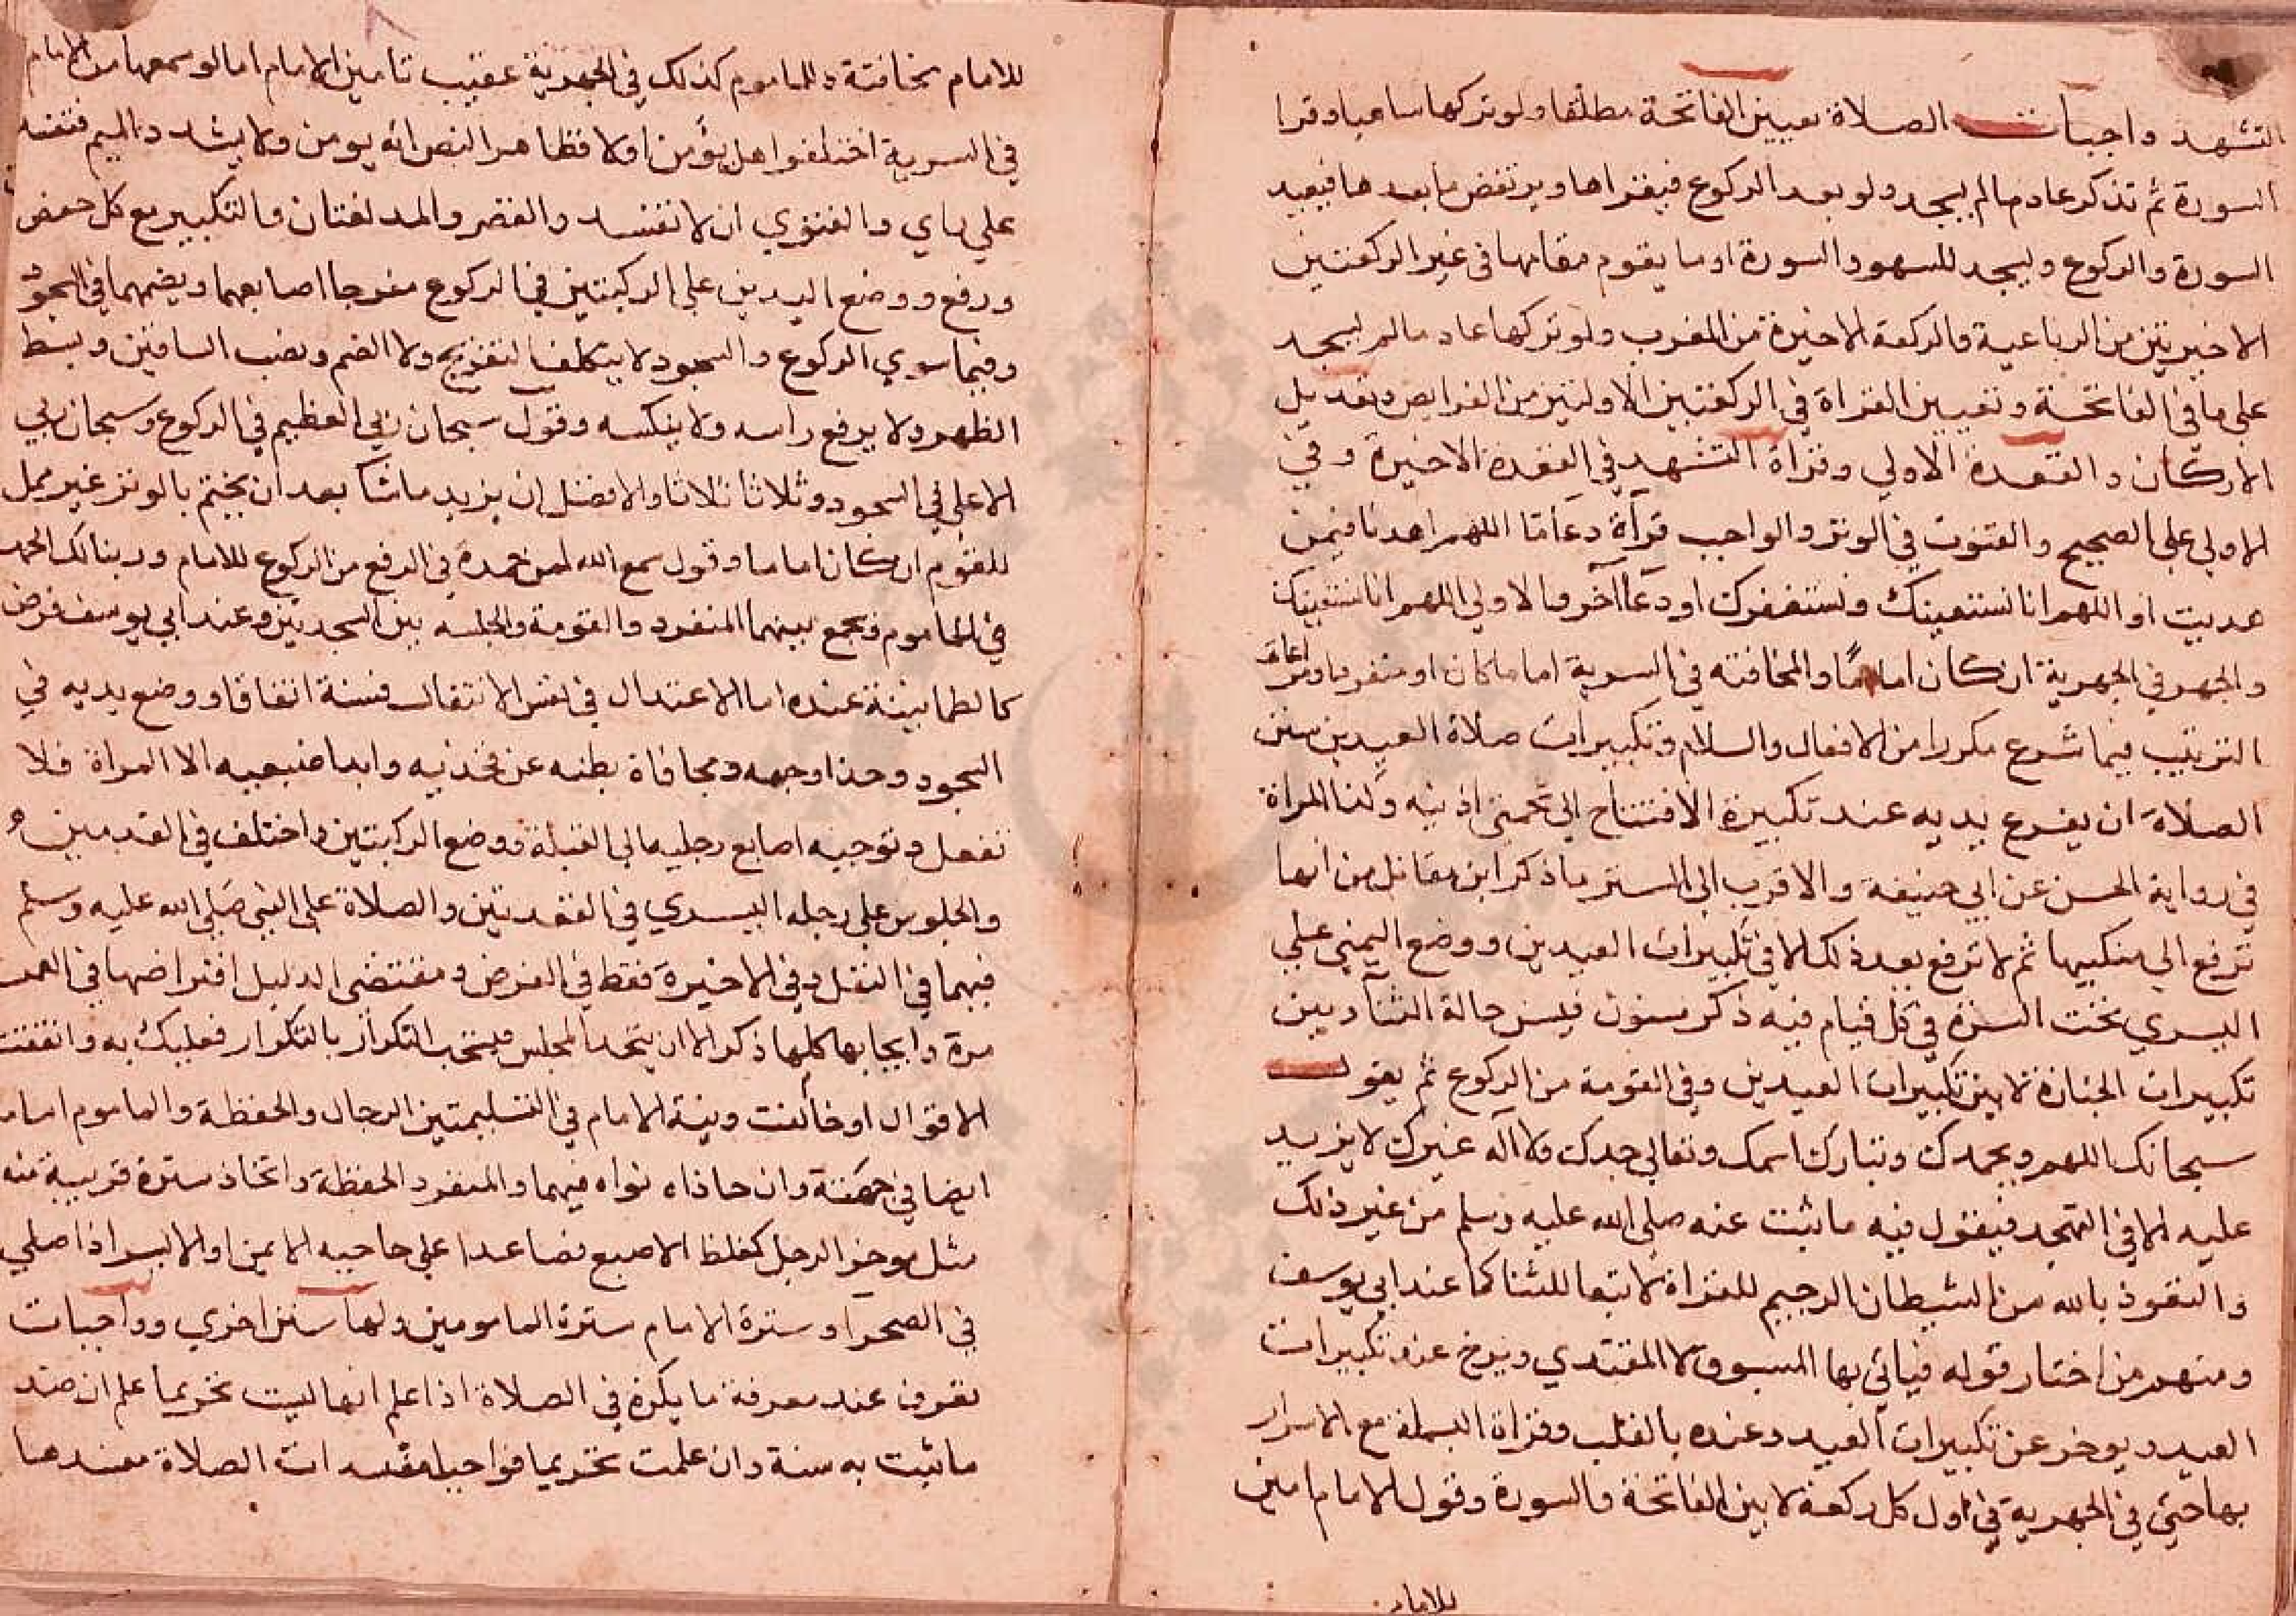 التشهد واجبات الصلاة تعيين الفاتحة مطلقا ولو تركها ساهيا وقرا
السورة ثم تذكر عاد ما لم يسجد ولو بعد الركوع فيقراها ويرتفض ما بعدها فيعيد
السورة والركوع ويسجد للسهو والسورة او ما يقوم مقامها في غير الركعتين
الاخيرتين من الرباعية والركعة الاخيرة من المغرب ولو تركها عاد ما لم يسجد
على ما في الفاتحة وتعيين القراة في الركعتين الاولتين من الفرايض وتعديل
الاركان والقعدة الاولي وقراة التشهد في القعدة الاخيرة وفي
الاولي على الصحيح والقنوت في الوتر والواجب قرآة دعآ اما اللهم اهدنا فيمن
هديت او اللهم انا نستعينك ونستغفرك او دعآ آخر والاولي اللهم انا نستعينك
والجهر في الجهرية ان كان اماما والمخافته في السرية اماما كان او منفردا ومراعاة
الترتيب فيما شرع مكررا من الافعال والسلام وتكبيرات صلاة العيدين سنن
الصلاة ان يفرع يديه عند تكبيرة الافتتاح الي شحمتي اذنيه وكذا المراة
في رواية الحسن عن ابي حنيفة والاقرب الى الستر ما ذكر ابن مقاتل من انها
ترفع الي منكبيها ثم لا ترفع بعد ذلك الا في تكبيرات العيدين ووضع اليمني علي
اليسري تحت السرة في كل قيام فيه ذكر مسنون فيسن حالة الثنآ وبين
تكبيرات الجنازة لا بين تكبيرات العيدين وفي القومة من الركوع ثم يقول
سبحانك اللهم وبحمدك وتبارك اسمك وتعالي جدك ولا اله غيرك لا يزيد
عليه الا في التهجد فيقول فيه ما ثبت عنه صلى الله عليه وسلم من غير ذلك
والتعوذ بالله من الشيطان الرجيم للقراة لا تبعا للثنا كما عند ابي يوسف
ومنهم من اختار قوله فيأتي بها المسبوق لا المقتدي ويؤخر عن تكبيرات
العيد ويوخر عن تكبيرات العيد وعنده بالقلب وقراة البسملة مع الاسرار
بها حتي في الجهرية في اول كل ركعة لا بين الفاتحة والسورة وقول الامام امين
للامام
للامام مخافتة وللماموم كذلك في الجهرية عقيب تامين الامام اما لو سمعها من الامام
في السرية اختلفوا هل يؤمن او لا فظاهر النص انه يومن ولا يشدد الميم فتفسد
علي راي والفتوي ان لا تفسد والقصر والمد لغتان والتكبير مع كل خفض
ورفع ووضع اليدين على الركبتين في الركوع مفرجا اصابعهما ويضمهما في السجود
وفيما سوي الركوع والسجود لا يتكلف التفريج ولا الضم ونصب الساقين وبسط
الظهر ولا يرفع راسه ولا ينكسه وقول سبحان ربي العظيم في الركوع وسبحان ربي
الاعلى في السجود وثلاثا ثلاثا والافضل ان يزيد ما شآ بعد ان يختم بالوتر غير ممل
للقوم ان كان اماما وقول سمع الله لمن حمده في الرفع من الركوع للامام وربنا لك الحمد
في الماموم ويجمع بينهما المنفرد والقومة والجلسه بين السجدتين وعند ابي يوسف فرض
كالطمانينة عنده اما الاعتدال في نفس الانتقال فسنة اتفاقا ووضع يديه في
السجود وحذا وجهه ومجافاة بطنه عن فخذيه وابدا ضبعيه الا المراة فلا
تفعل وتوجيه اصابع رجليه الى القبلة ووضع الركبتين واختلف في القدمين
والجلوس على رجله اليسري في القعدتين والصلاة على النبي صلى الله عليه وسلم
فيهما في النفل وفي الاخيرة فقط في الفرض ومقتضى الدليل افتراضها في العمر
مرة وايجابها كلما ذكر الا ان يتحد المجلس فيستحب التكرار بالتكرار فعليك به واتفقت
الاقوال او خالفت ونية الامام في التسليمتين الرجال والحفظة والماموم امامه
ايضا في جهته وان حاذاه نواه فيهما والمنفرد الحفظة واتخاذ سترة قريبة منه
مثل موخر الرحل كغلظ الاصبع فصاعدا على حاجبه الايمن او الايسر اذا صلي
في الصحرا وسترة الامام سترة المامومين ولها سنن اخري وواجبات
تعرف عند معرفة ما يكره في الصلاة اذا علم انها ليست تحريما علم ان ضد
ما ثبت به سنة وان علمت تحريما فواجبا مفسدات الصلاة مفسدها